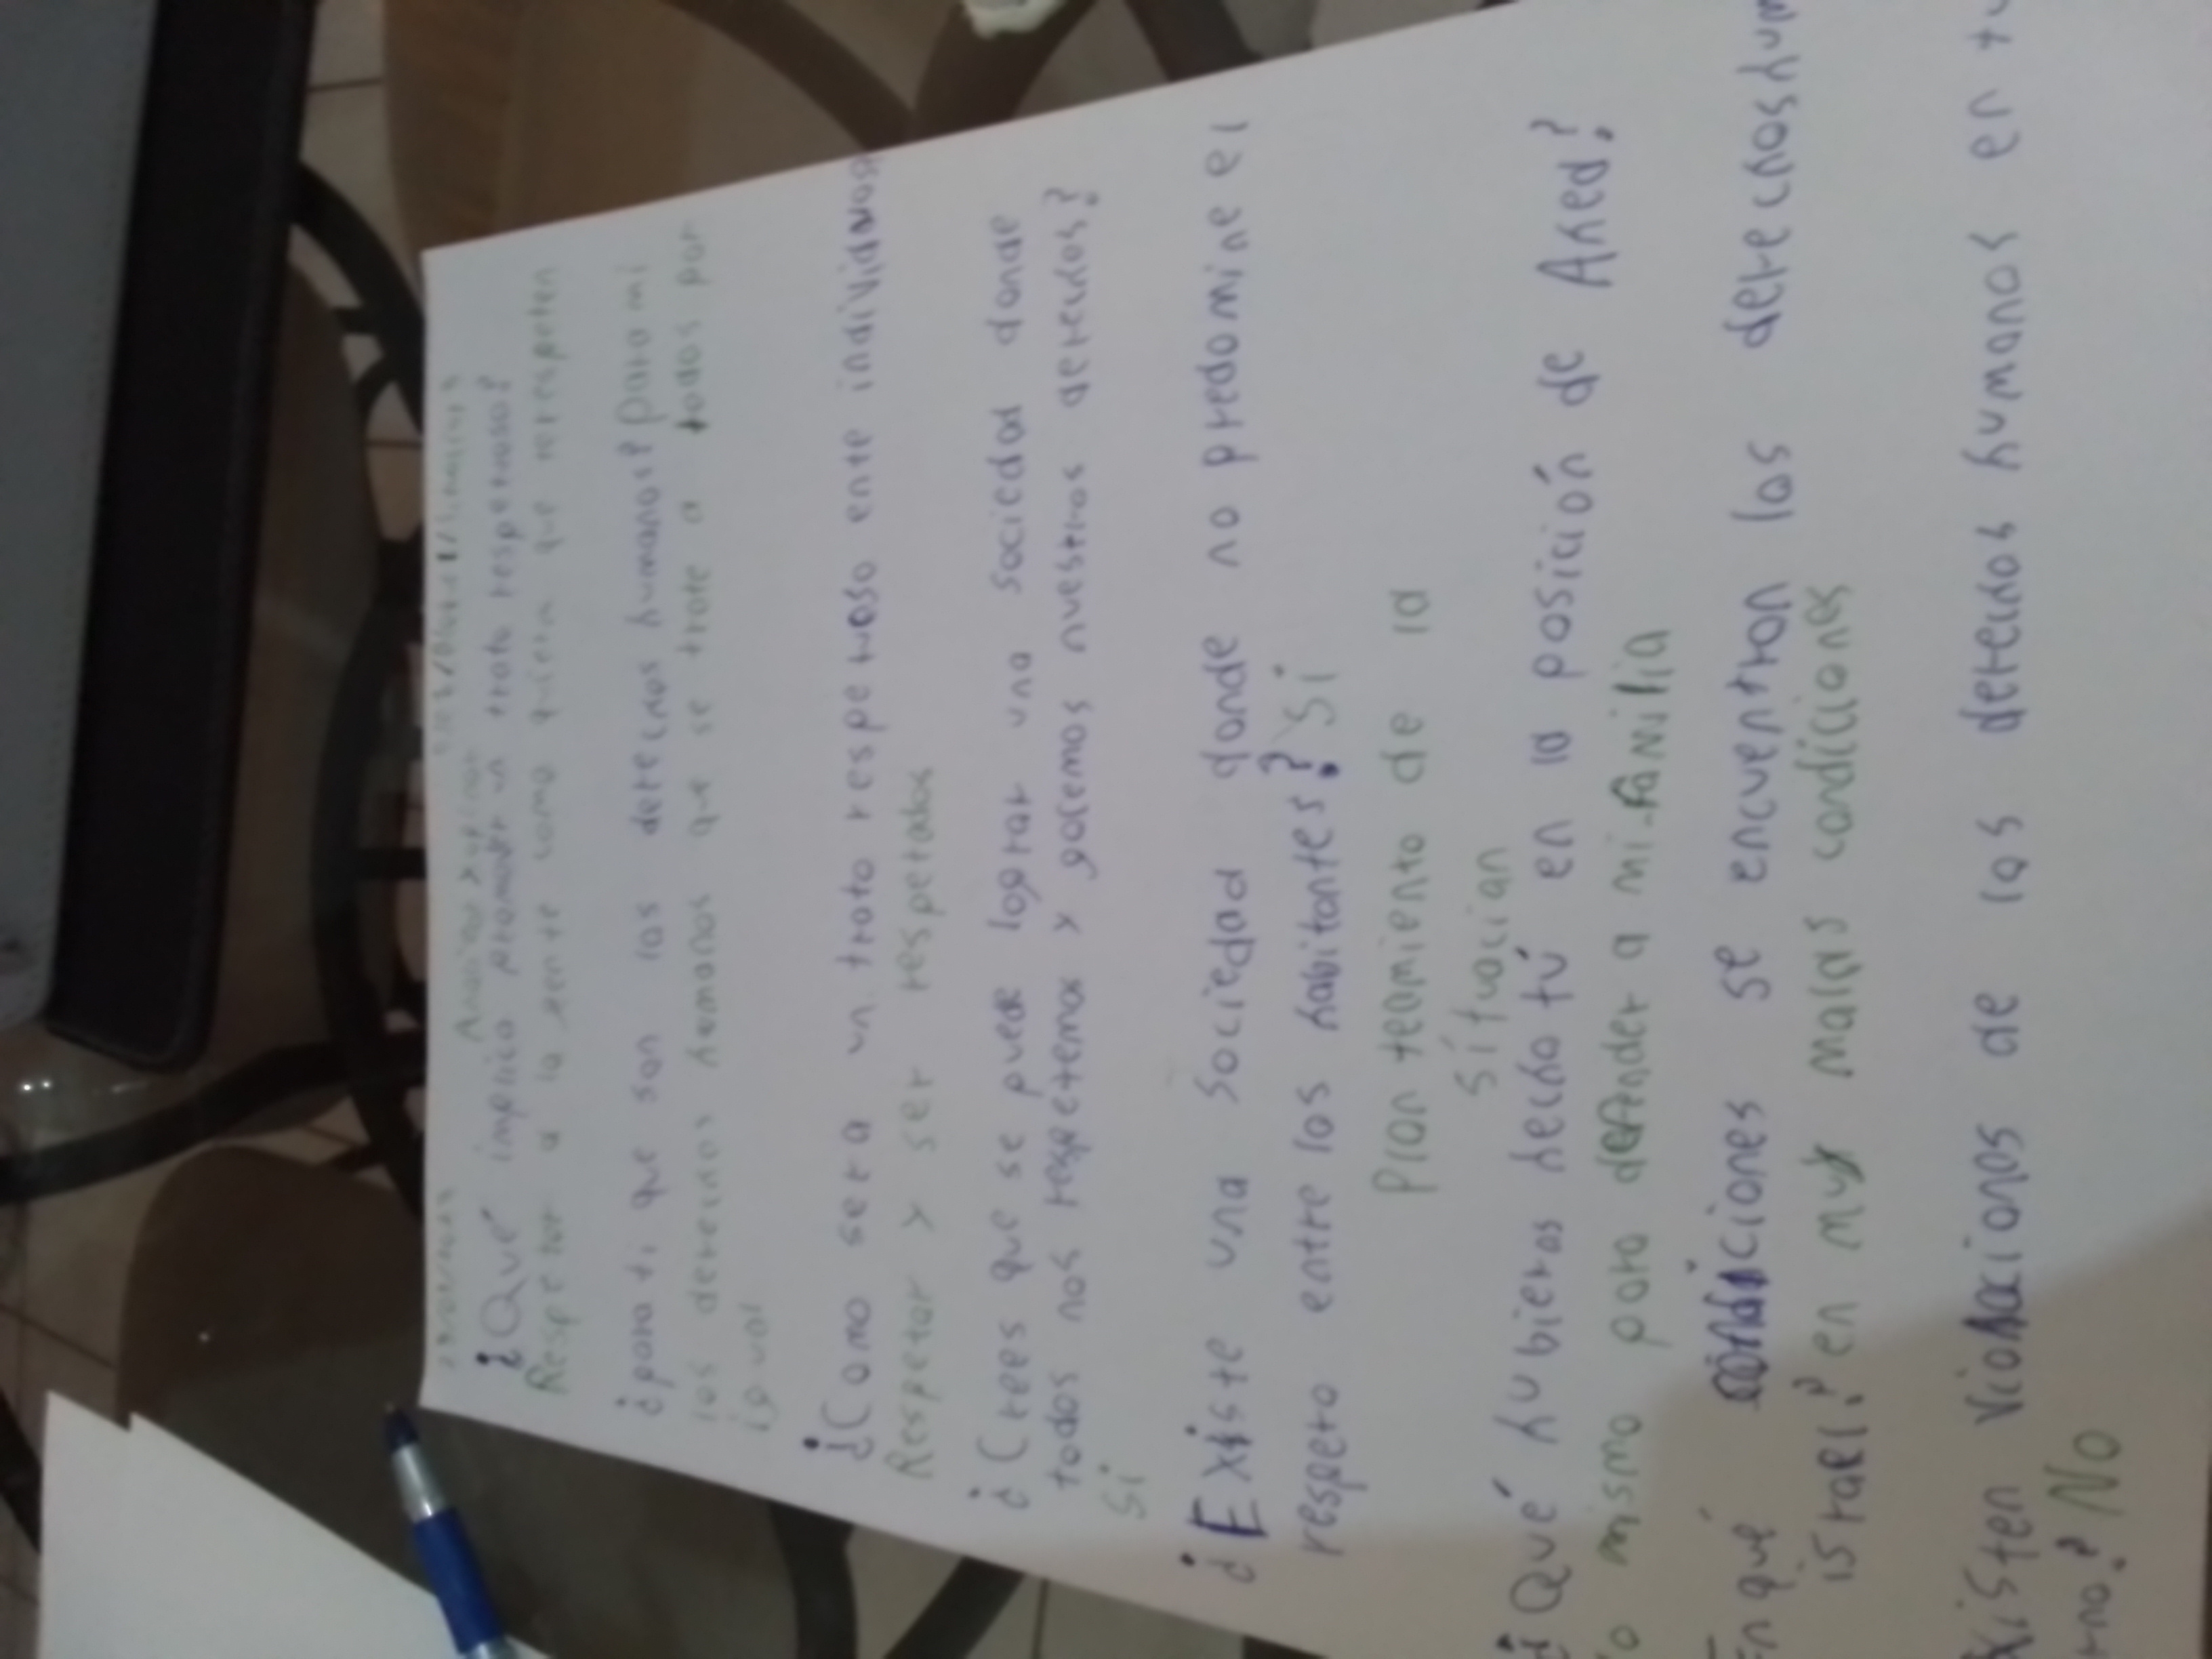 Analizar y opinar
¿Qué implica promover un trato respetuoso?
Respetar a la gente como quieren que te respeten
¿para ti que son los derechos humanos? para mi
los derechos humanos que se trate a todos por
igual
¿Como sera un trato respetuoso ente individuos
Respetar y ser respetados
¿Crees que se puede lograr una sociedad donde
todos nos respetemos y gocemos nuestros derechos?
Si
¿Existe una sociedad donde no predomine el
respeto entre los habitantes? Si
Planteamiento de la
situacian
¿Qué hubieras hecho tú en la posición de Ahed?
lo mismo para defender a mi familia
En qué condiciones se encuentran los derechos hum
israel? en muy malas condiciones
xisten violacions de los derechos humanos en tu
rno? No